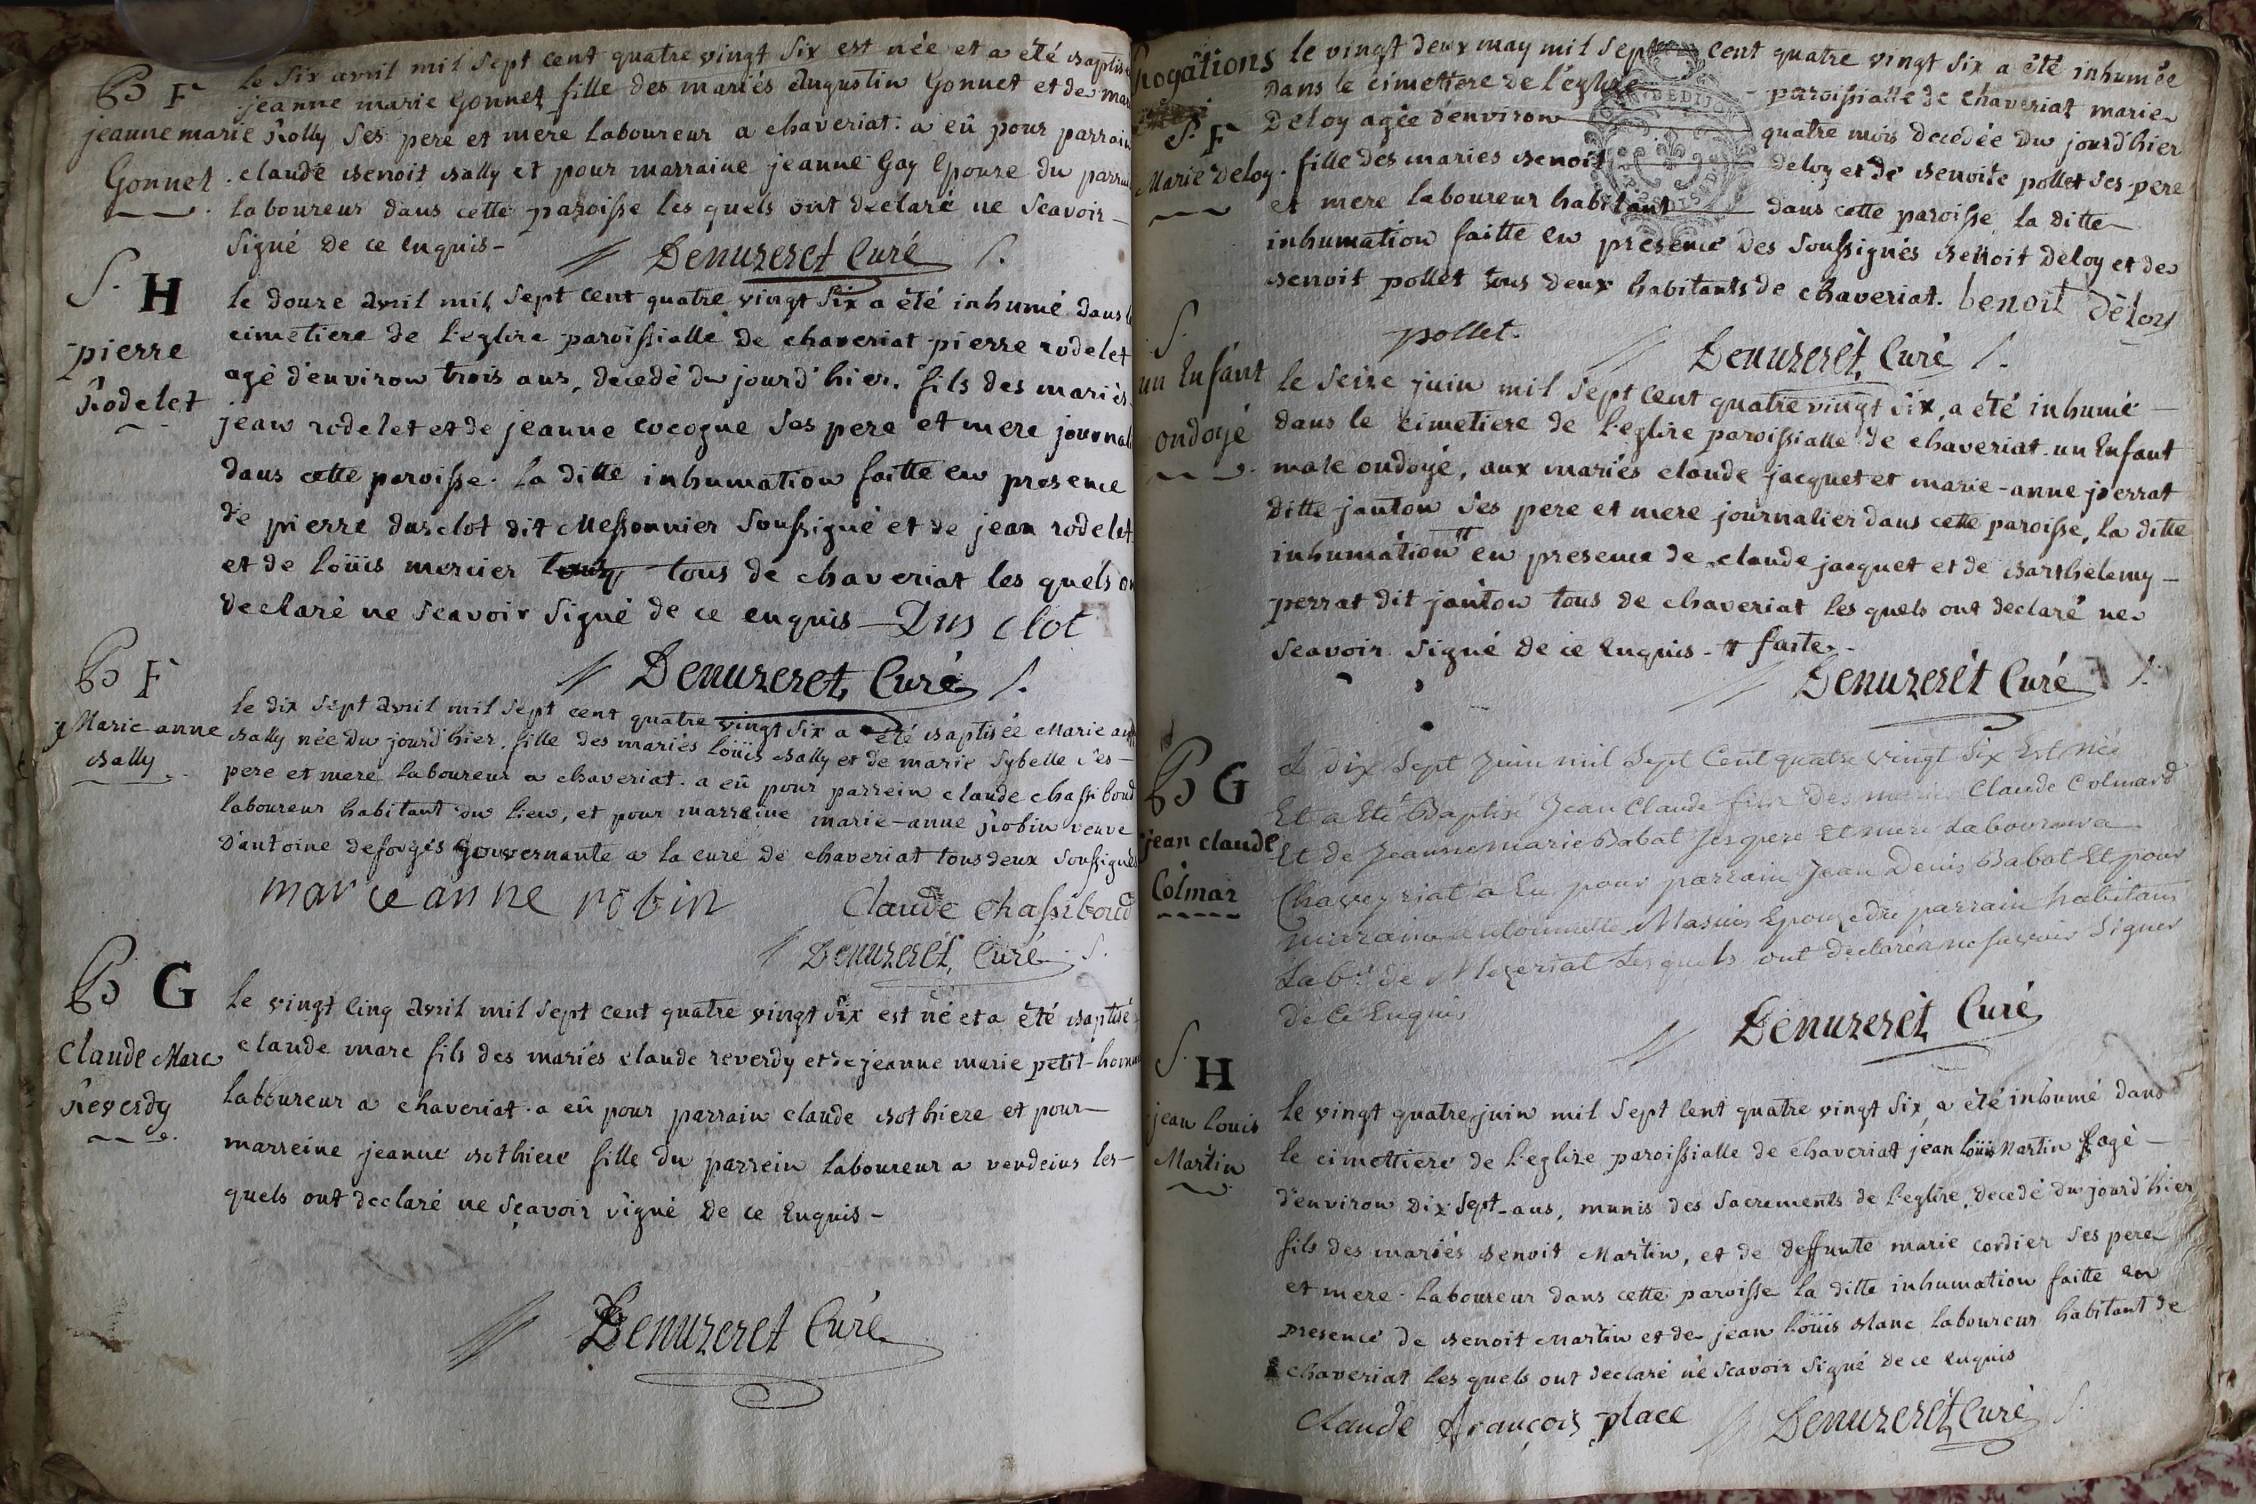 B F
jeanne marie
Gonnet
le six avril mil sept cent quatre vingt six est née et a été baptisée
jeanne marie Gonnet fille des mariés augustin Gonnet et de marie
Rolly ses pere et mere laboureur a chaveriat. a eû pour parrain
claude benoit bally et pour marraine jeanne Gay Epouse du parrain
laboureur dans cette paroisse les quels ont declaré ne scavoir
signé de ce enquis -
Denuzeret Curé
S. H
pierre
Rodelet
le douze avril mil sept cent quatre vingt six a été inhumé dans le
cimetiere de l'eglise paroissialle de chaveriat pierre rodelet
agé d'environ trois ans, decedé du jourd'hier. fils des mariés
jean rodelet et de jeanne cocogne ses pere et mere journal
dans cette paroisse. la ditte inhumation faitte en presence
de pierre dusclot dit Messonnier soussigné et de jean rodelet
et de loüis mercier tous de chaveriat les quels on
declaré ne scavoir signé de ce enquis - Dus clot
Denuzeret Curé
B F
Marie anne
bally
le dix sept avril mil sept cent quatre vingt six a été baptisée Marie anne
bally née du jourd'hier. fille des mariés loüis bally et de marie sybelle ses
pere et mere laboureur a chaveriat. a eû pour parrein claude chassiboud
laboureur habitant du lieu, et pour marreine marie-anne Robin veuve
d'antoine desforges gouvernante a la cure de chaveriat tous deux soussignés
marie anne robin claude chassiboud
Denuzeret, Curé
B G
Claude Marc
Reverdy
le vingt cinq avril mil sept cent quatre vingt six est né et a été baptisé
claude marc fils des mariés claude reverdy et de jeanne marie petit-homme
laboureur a chaveriat. a eû pour parrain claude bothiere et pour
marreine jeanne bothiere fille du parrein laboureur a vendeins les
quels ont declaré ne sçavoir signé de ce enquis -
Denuzeret Curé
Rogations
S. F
Marie Deloy
le vingt deux may mil sept cent quatre vingt six a été inhumée
dans le cimettere de l'eglise paroissialle de chaveriat marie
Deloy agée d'environ quatre mois decedée du jourd'hier
fille des maries benoit deloy et de benoite pollet ses pere
et mere laboureur habitant dans cette paroisse, la ditte
inhumation faitte en presence des soussignés benoit deloy et de
benoit pollet tous deux habitants de chaveriat. benoit deloy
pollet.
Denuzeret, Curé
S.
un Enfant
ondoyé
le seize juin mil sept cent quatre vingt six, a été inhumé
dans le cimetiere de l'eglise paroissialle de chaveriat un Enfant
male ondoyé, aux mariés claude jacquet et marie-anne perrat
ditte janton ses pere et mere journalier dans cette paroisse, la ditte
inhumation # en presence de claude jacquet et de barthelemy
perrat dit janton tous de chaveriat les quels ont declaré ne
scavoir signé de ce enquis - # faite.
Denuzeret Curé
B G
jean claude
Colmar
Le dix Sept Juin mil Sept Cent quatre vingt Six Est Née
Et a Eté Baptisé Jean Claude fils Des mariés Claude Colmard
Et de Jeanne marie Babat Ses pere Et mere Laboureur a
Chaveyriat a Eu pour parrain Jean Denis Babat Et pour
maraine antoinette Masuis Epouze du parrain habitans
Lab.r de Mezeriat Lesquels ont declaré ne scavoir Signer
de Ce Enquis
Denuzeret Curé
S. H
jean louis
Martin
le vingt quatre juin mil sept cent quatre vingt six, a été inhumé dans
le cimettiere de l'eglize paroissialle de chaveriat jean loüis Martin agé
d'environ dix sept ans, munis des sacrements de l'eglise, decedé du jourd'hier
fils des mariés benoit Martin, et de deffunte marie cordier ses pere
et mere. laboureur dans cette paroisse la ditte inhumation faitte en
presence de benoit martin et de jean loüis blanc laboureur habitant de
chaveriat les quels ont declaré ne scavoir signé de ce enquis
claude françois place Denuzeret, Curé